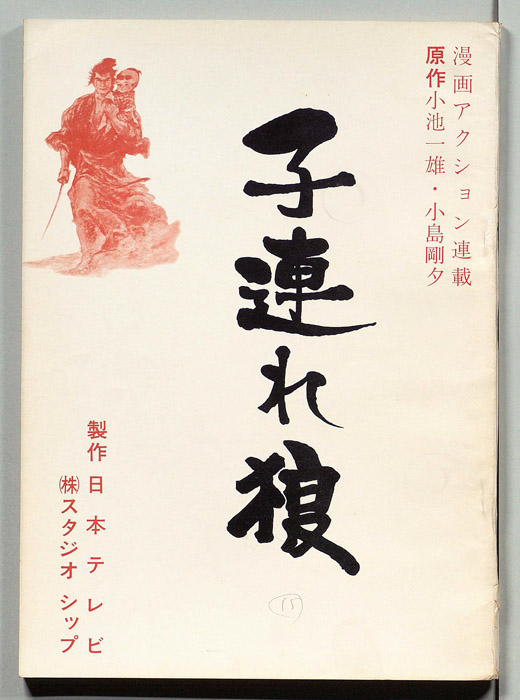 漫画アクション連載
原作小池一雄・小島剛夕
子連れ狼
製作日本テレビ
㈱スタジオシップ
15